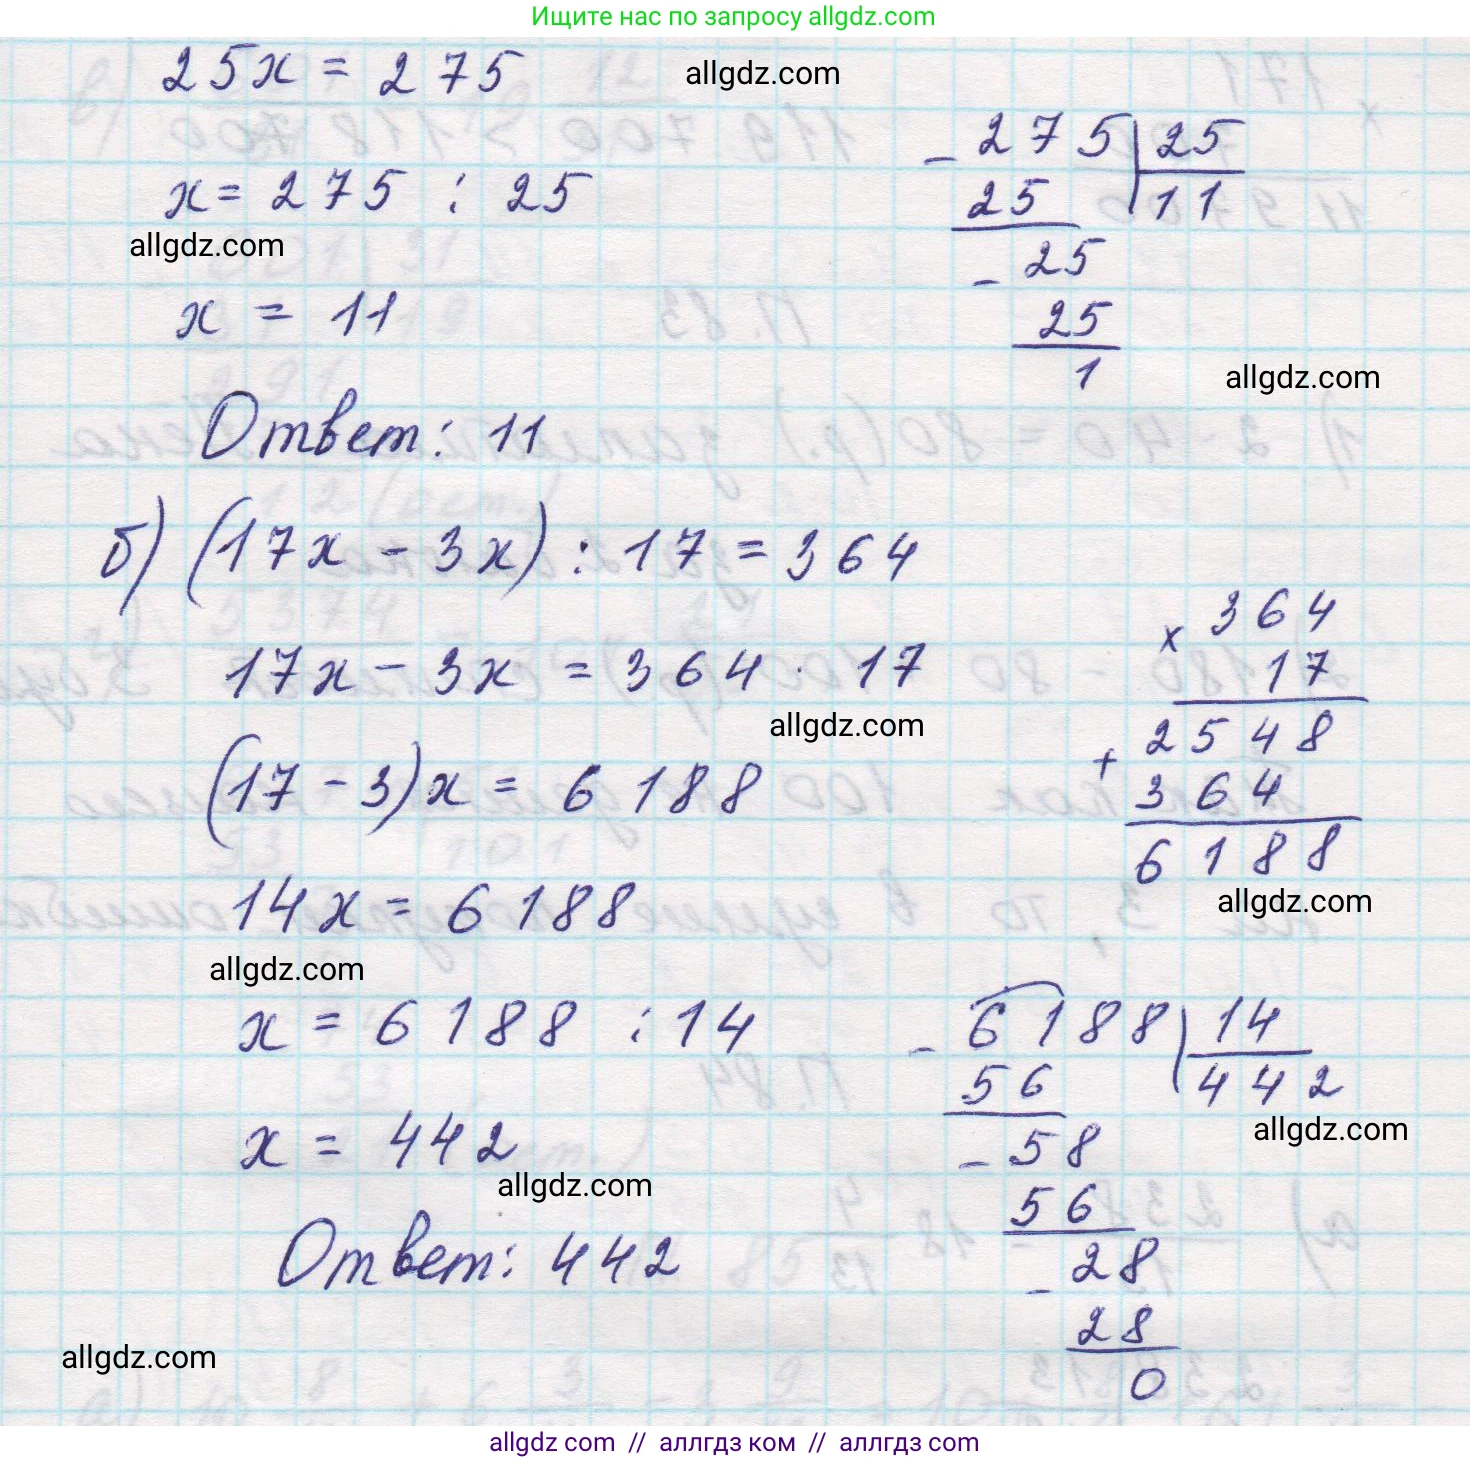 Ищите нас по запросу allgdz.com
25x = 275
allgdz.com
x = 275 : 25
allgdz.com
x = 11
- 275 | 25
25 11
- 25
25
1
allgdz.com
Ответ: 11
б) (17x - 3x) : 17 = 364
17x - 3x = 364 · 17
allgdz.com
(17 - 3)x = 6188
14x = 6188
allgdz.com
x 364
17
+ 2548
364
6188
allgdz.com
x = 6188 : 14
x = 442
allgdz.com
- 6188 | 14
56 442
allgdz.com
- 58
56
- 28
28
0
Ответ: 442
allgdz.com
allgdz com // аллгдз ком // аллгдз com